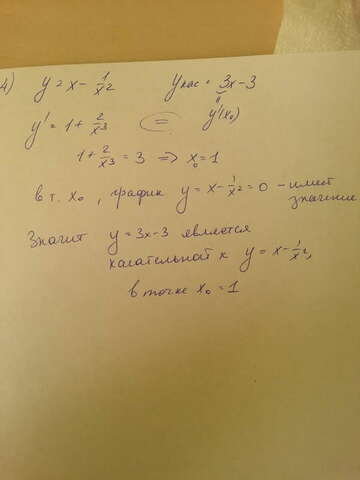 4) y = x - 1/x² yкас = 3x-3
y' = 1 + 2/x³ = y'(x₀)
1 + 2/x³ = 3 => x₀ = 1
в т. x₀, график y = x - 1/x² = 0 - имеет
значение
Значит y = 3x-3 является
касательной к y = x - 1/x²,
в точке x₀ = 1